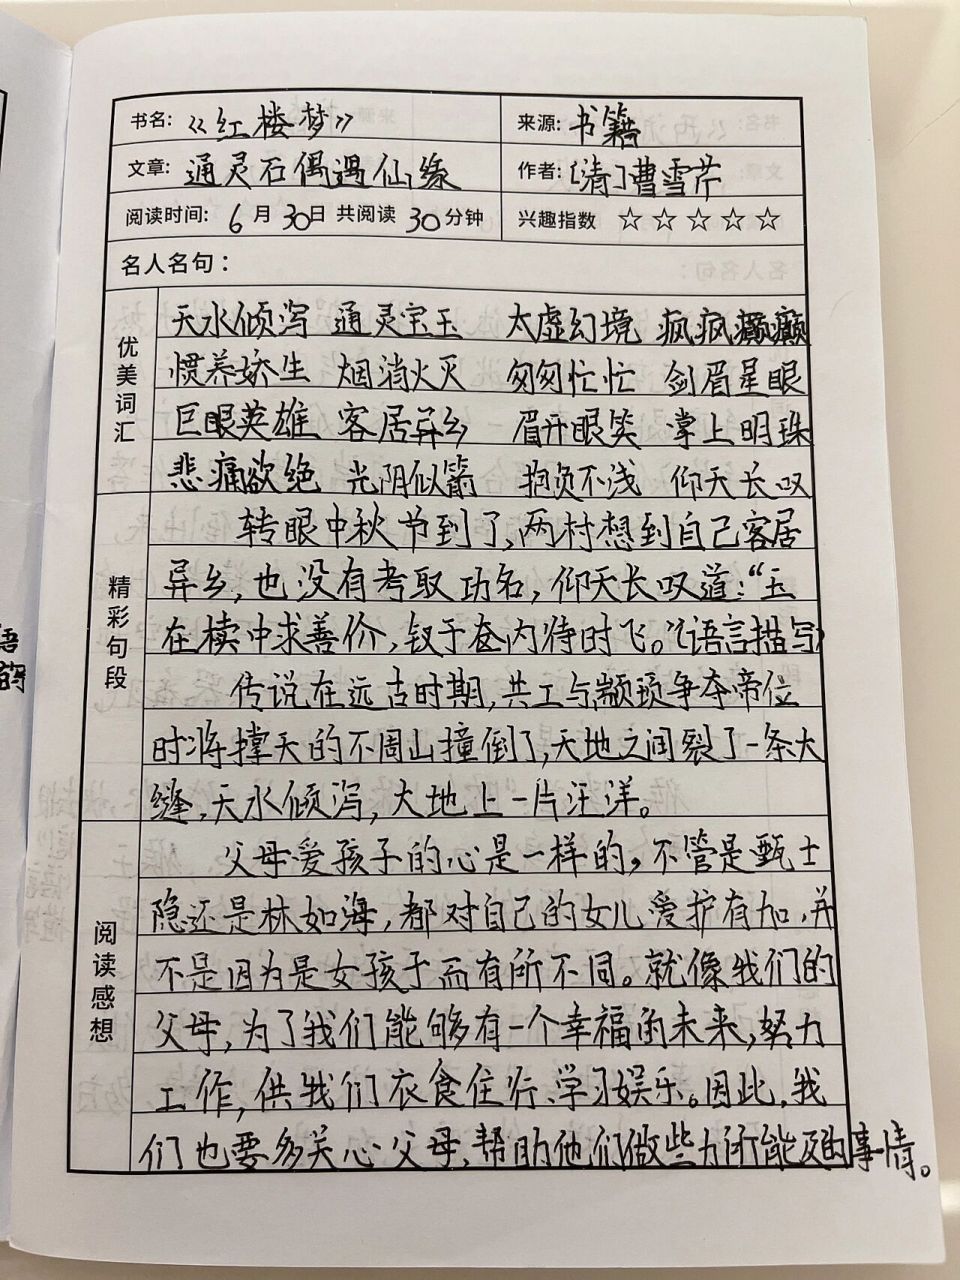 书名: 《红楼梦》 来源: 书籍
文章: 通灵石偶遇仙缘 作者: [清]曹雪芹
阅读时间: 6月30日 共阅读 30分钟 兴趣指数 ☆☆☆☆☆
名人名句：
优美词汇
天水倾泻 通灵宝玉 太虚幻境 疯疯癫癫
惯养娇生 烟消火灭 匆匆忙忙 剑眉星眼
巨眼英雄 客居异乡 眉开眼笑 掌上明珠
悲痛欲绝 光阴似箭 抱负不浅 仰天长叹
精彩句段
转眼中秋节到了,两村想到自己客居
异乡,也没有考取功名,仰天长叹道:“玉
在椟中求善价,钗于奁内待时飞。”(语言描写)
传说在远古时期,共工与颛顼争夺帝位
时将撑天的不周山撞倒了,天地之间裂了一条大
缝,天水倾泻,大地上一片汪洋。
阅读感想
父母爱孩子的心是一样的,不管是甄士
隐还是林如海,都对自己的女儿爱护有加,并
不是因为是女孩子而有所不同。就像我们的
父母,为了我们能够有一个幸福的未来,努力
工作,供我们衣食住行、学习娱乐。因此,我
们也要多关心父母,帮助他们做些力所能及的事情。